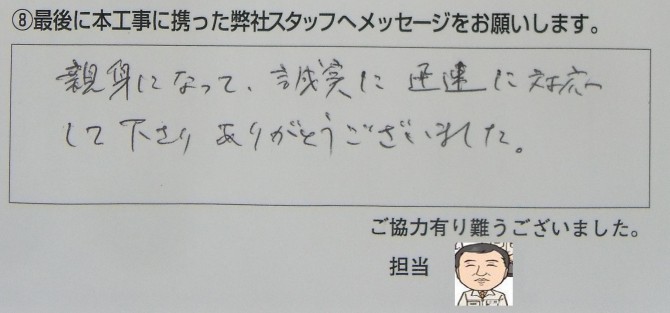 ⑧最後に本工事に携った弊社スタッフへメッセージをお願いします。
親身になって、誠実に迅速に対応
して下さり ありがとうございました。
ご協力有り難うございました。
担当